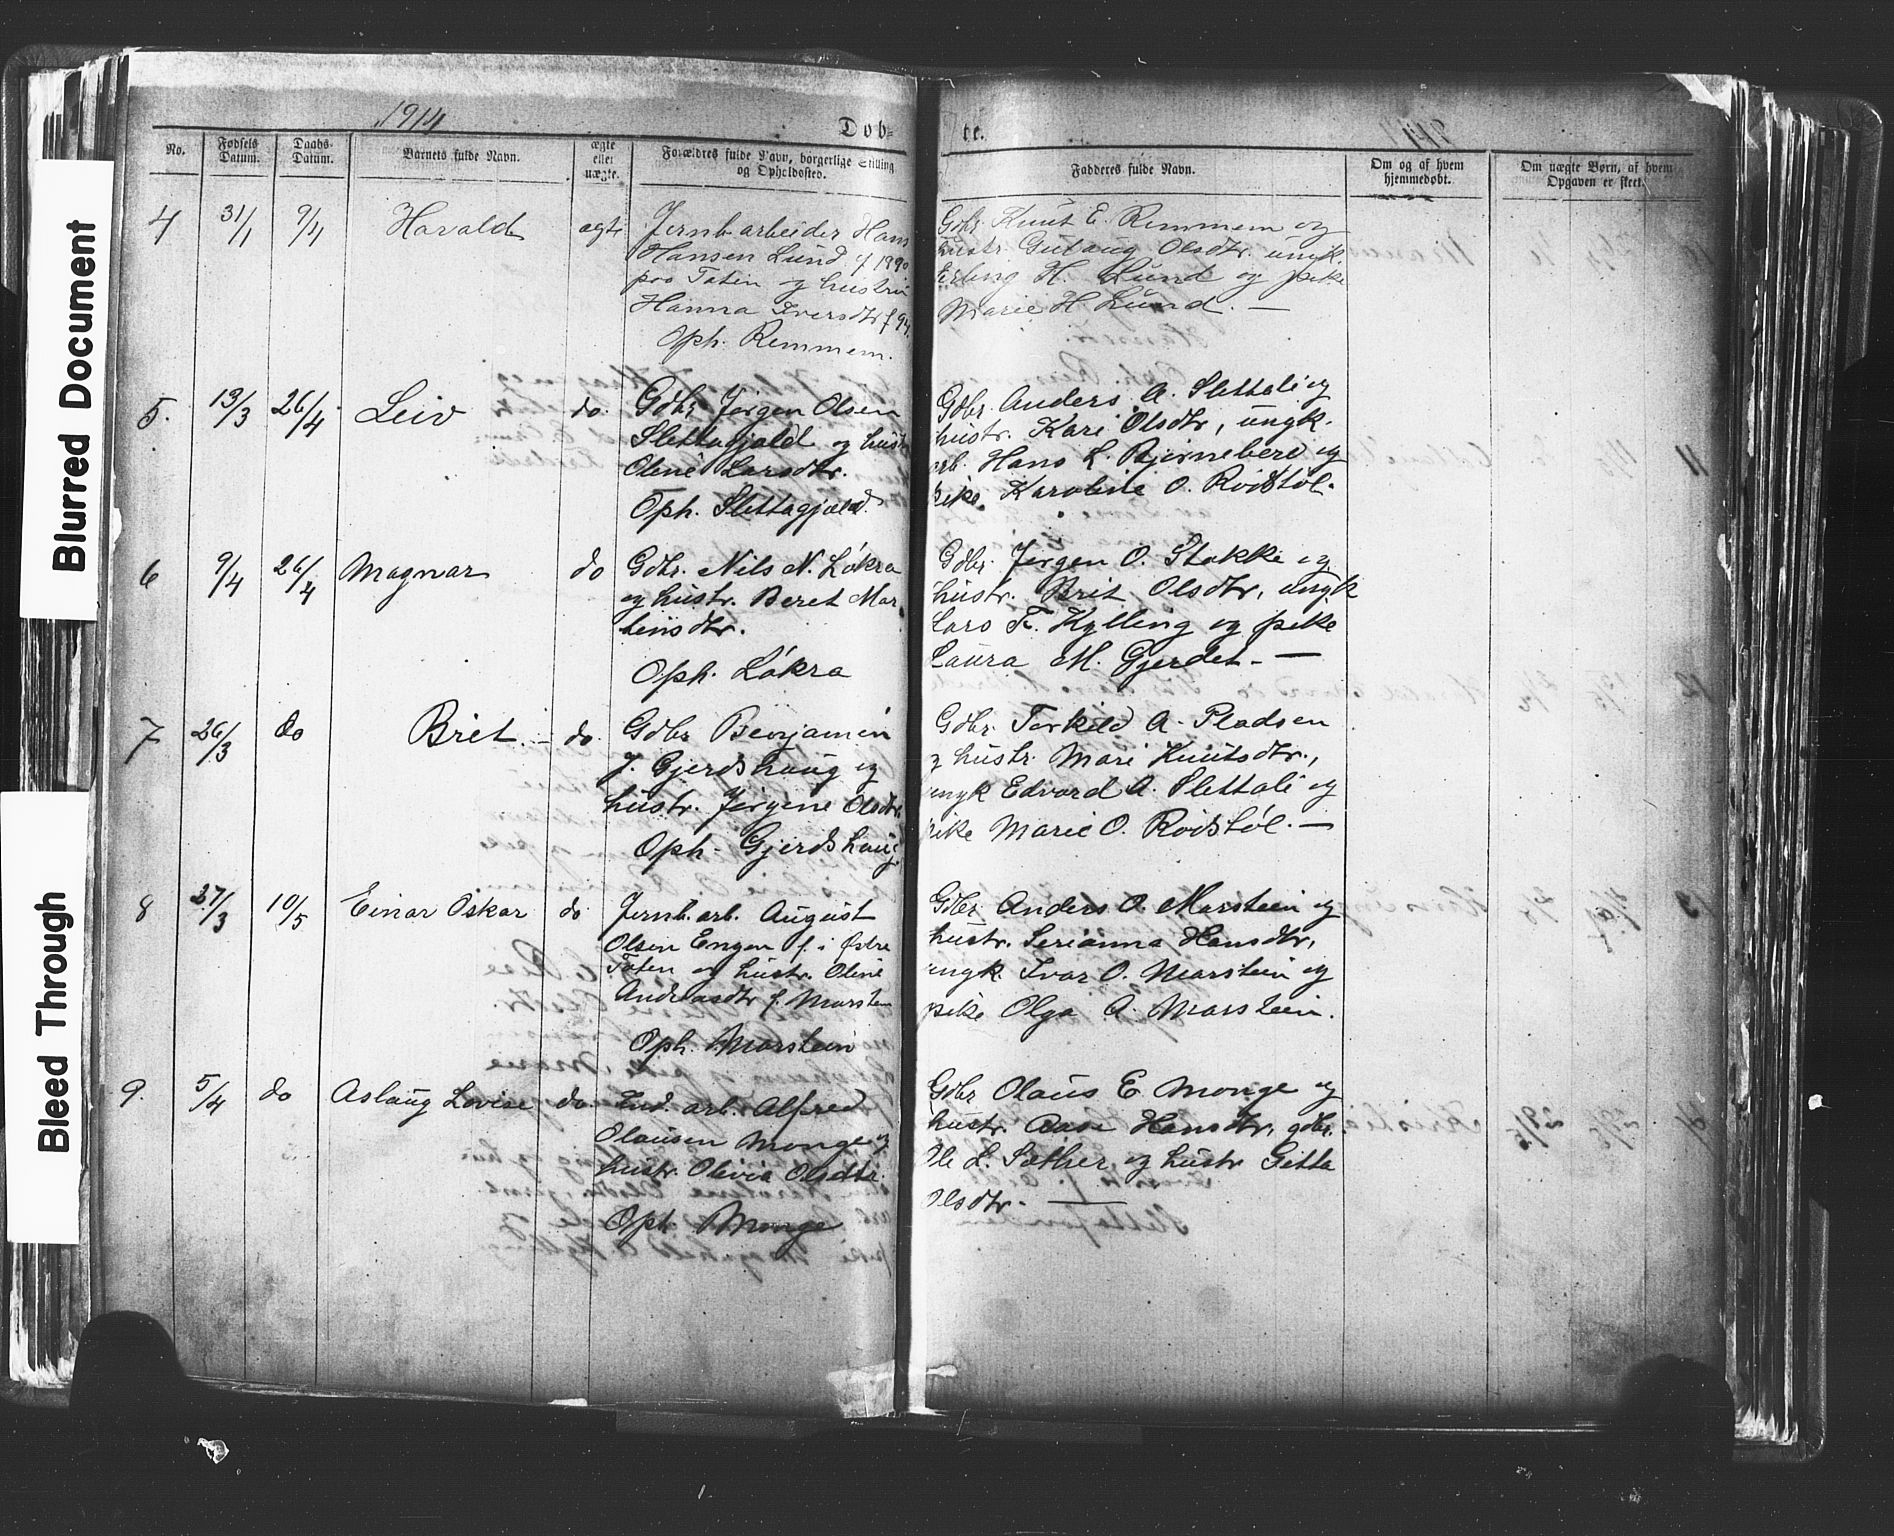 Blurred Document
Bleed Through
1914
Døb-
te.
No.
Fødsels Datum.
Daabs-Datum.
Barnets fulde Navn.
ægte eller uægte.
Forældres fulde Navn, borgerlige Stilling og Opholdssted.
Fadderes fulde Navn.
Om og af hvem hjemmedøbt.
Om uægte Børn, af hvem Opgaven er skeet.
4 31/1 9/4 Harald ægte
Jernb. arbeider Hans
Hansen Lund f 1890
paa Toten og hustru
Hanna Iversdtr f 94.
Oph. Remmem.
Gdbr. Knut E. Remmem og
hustr. Gutaug Olsdtr. ungk.
Erling H. Lund og pike
Marie H Lund. —
5. 13/3 26/4 Leiv do.
Gdbr Jørgen Olsen
Slettagjald og hustr
Oline Larsdtr.
Oph. Slettagjæld.
Gdbr. Anders A. Slettali og
hustr. Kari Olsdtr, ungk.
arb. Hans L. og
pike Karoline O. Rødstøl.
6 9/4 26/4 Magnar do
Gdbr. Nils N. Løkra
og hustr. Beret Mar
tinsdtr.
Oph. Løkra
Gdbr. Jørgen O. Stokke og
hustr. Brit Olsdtr, ungk
Lars T. Kylling og pike
Laura M. Gjerdet. —
7 26/3 do Brit. — do.
Gdbr Benjamin
J. Gjerdshaug og
hustr. Jørgine Olsdtr.
Oph. Gjerdshaug
Gdbr. Torkild A. Pladsen
og hustr. Mari Knutsdtr.,
ungk Edvard A. Slettali og
pike Marie O. Rødstøl. —
8 27/3 10/5 Einar Oskar do
Jernb. arb. August
Olsen Engen f. i Østre
Toten og hustr. Oline
Andreasdtr f. Marstein
Oph. Marstein
Gdbr. Anders O. Marstein og
hustr. Serianna Hansdtr,
ungk. Ivar O. Marstein og
pike Olga A. Marstein.
9. 5/4 do Aslaug Lovise do
Ind. arb. Alfred
Olausen Monge og
hustr. Olivia Olsdtr.
Oph. Monge
Gdbr Olaus E Monge og
hustr. Aase Hansdtr, gdbr.
Ole L. Sæther og hustr Gitta
Olsdtr. —